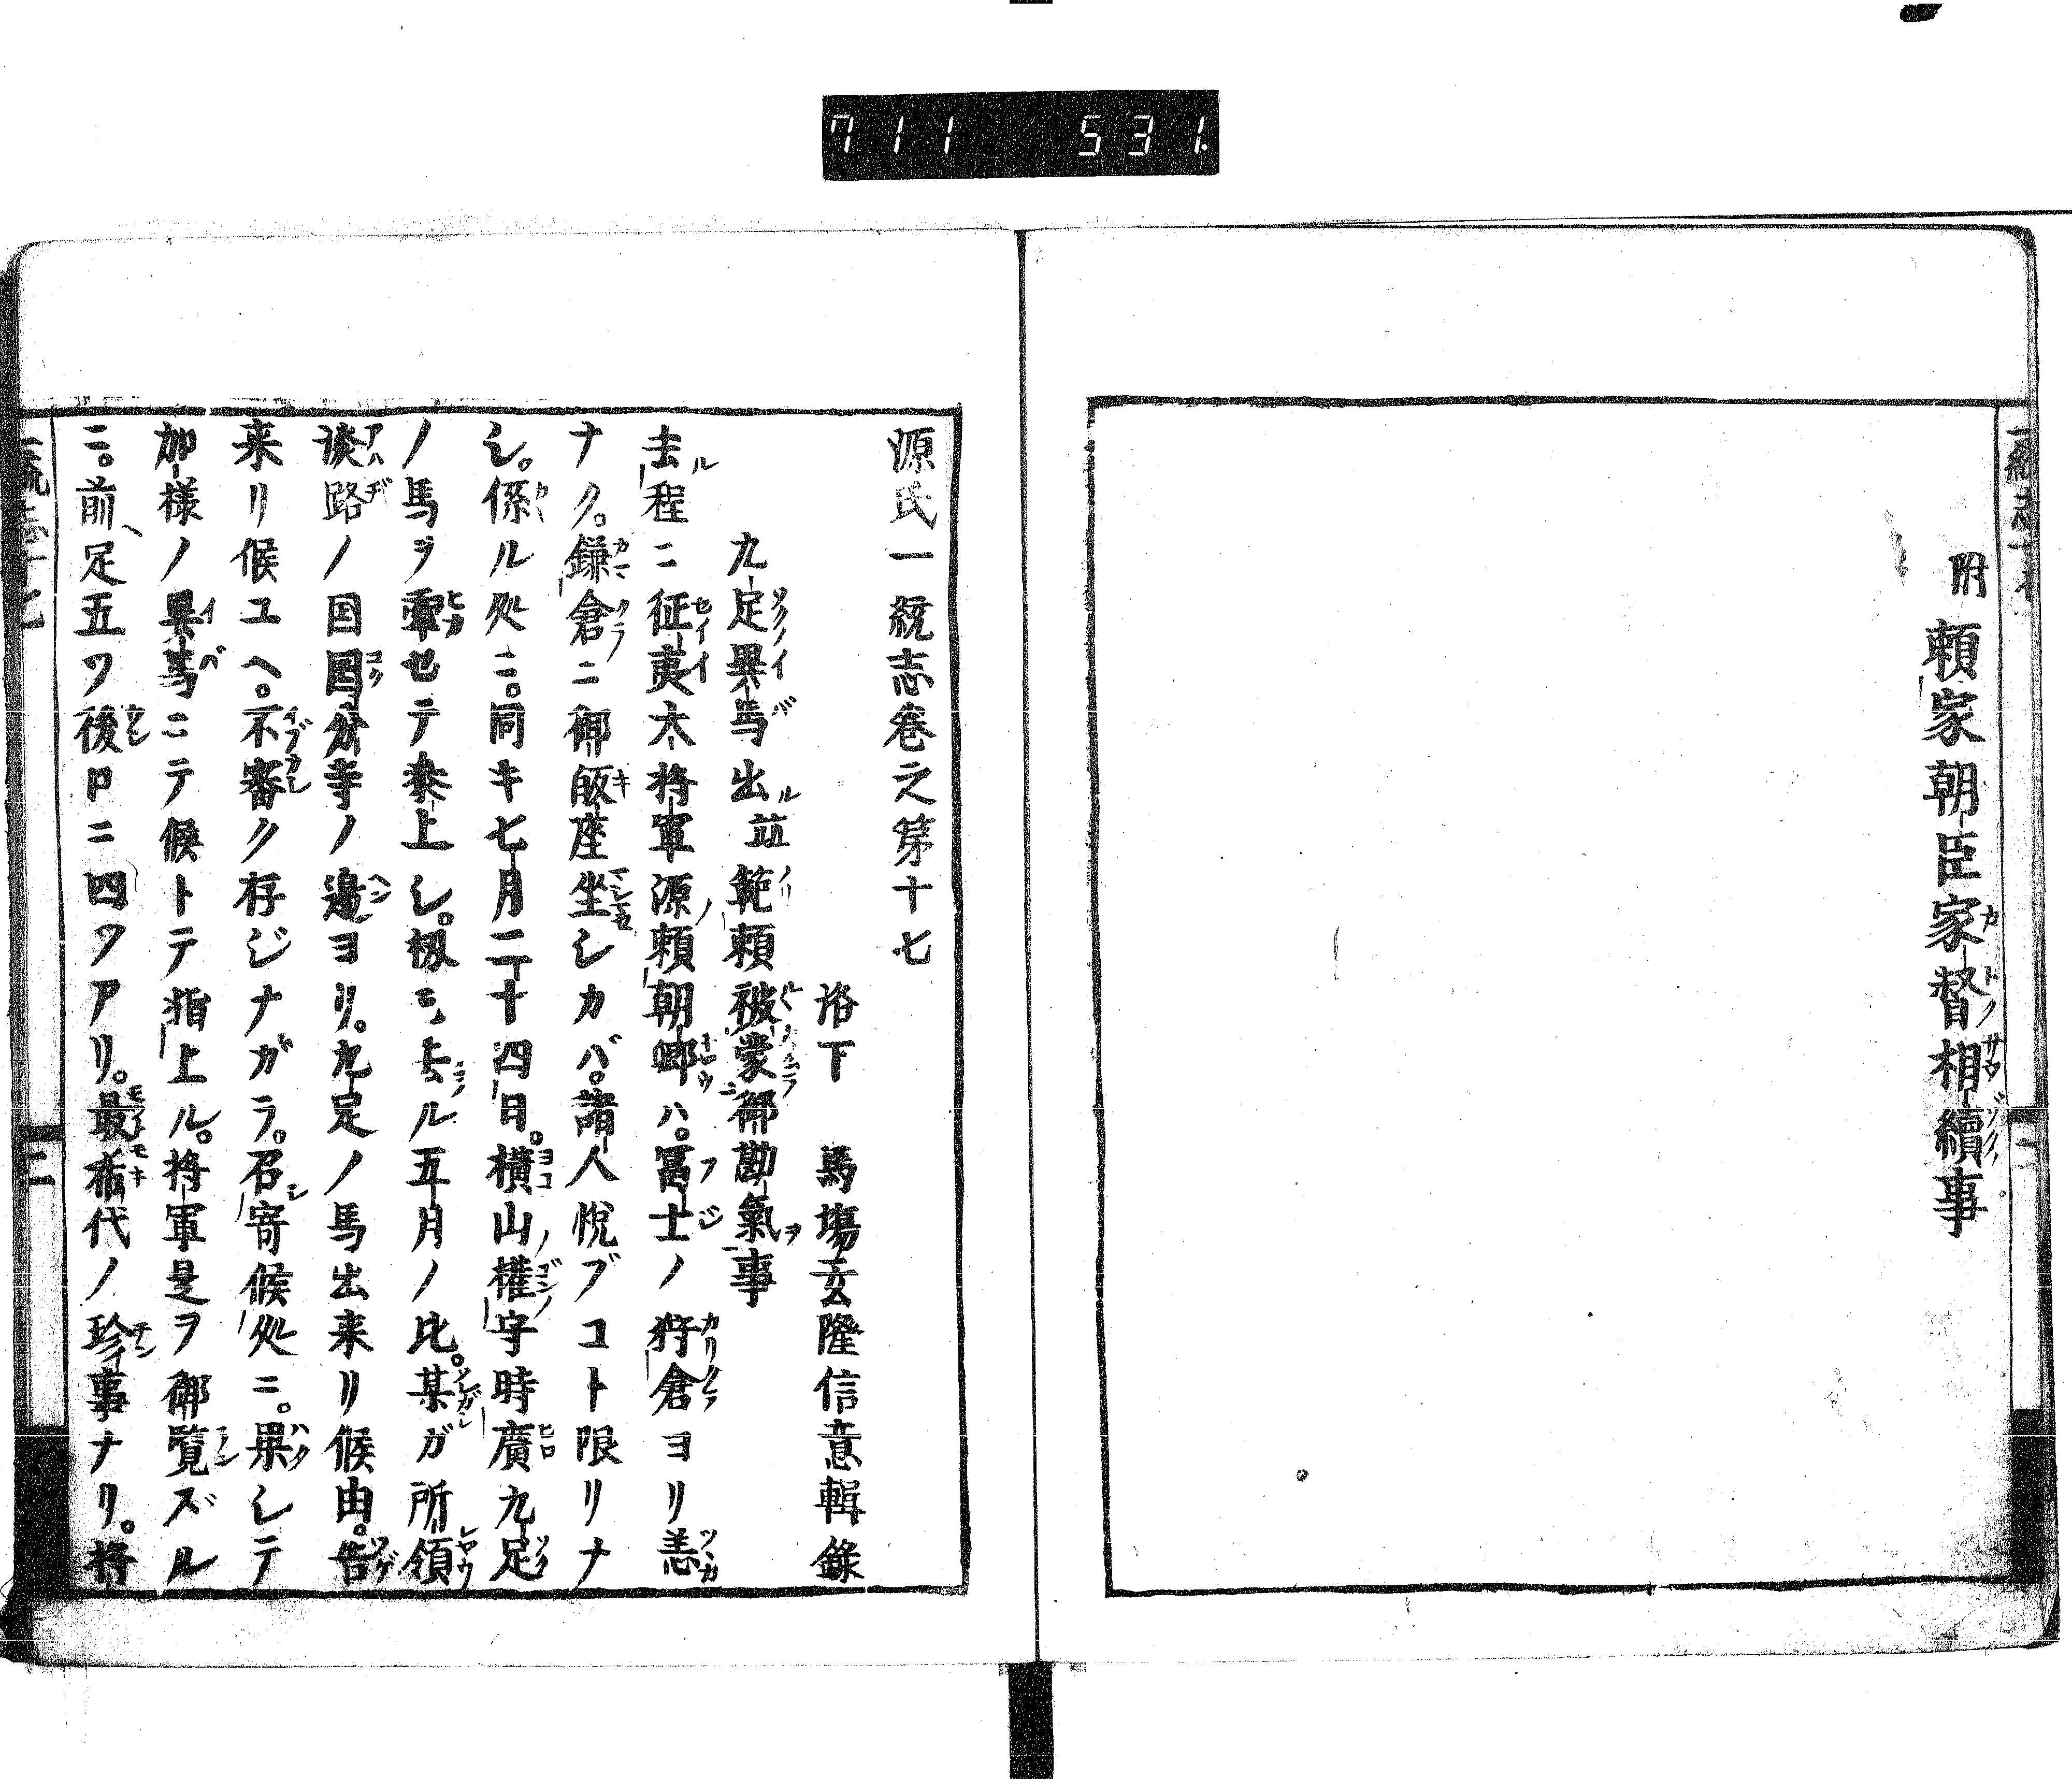 711 531
附 頼家朝臣家督相續事
源氏一統志巻之第十七
洛下 馬塲玄隆信意輯錄
九足異馬出ル並範頼被蒙御勘氣事
去ル程ニ征夷大将軍源頼朝卿ハ。冨士ノ狩倉ヨリ恙
ナク。鎌倉ニ御皈座坐シカバ。諸人悦ブコト限リナ
シ。係ル処ニ。同キ七月二十四日。横山權守時廣九足
ノ馬ヲ牽セテ参上シ。扨ニ去ル五月ノ比。某ガ所領
淡路ノ国国分寺ノ邉ヨリ。九足ノ馬出来リ候由。告
来リ候ユヘ。不審ク存ジナガラ。召寄候処ニ。果シテ
加様ノ異馬ニテ候トテ指上ル。将軍是ヲ御覧ズル
ニ。前足五ツ後ロニ四ツアリ。最希代ノ珍事ナリ。将